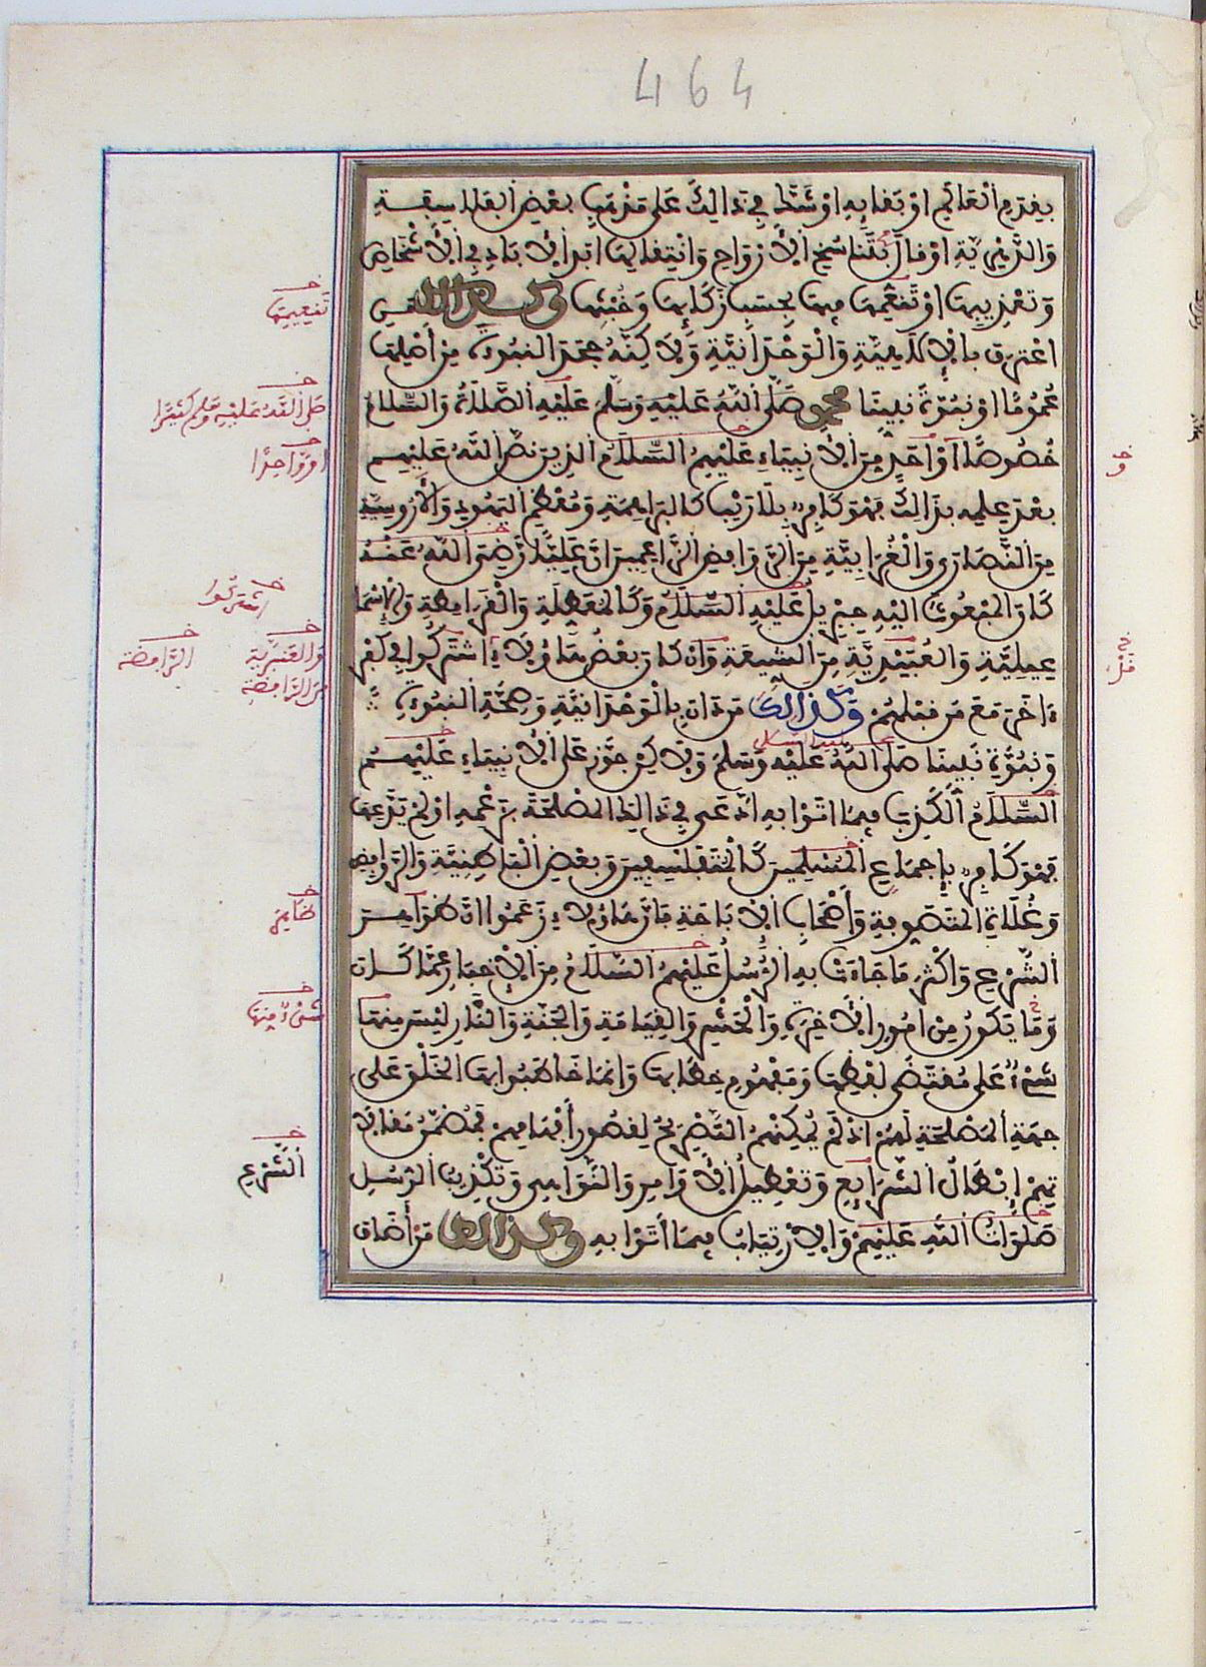 464
بقدم العالم او بقائه او شك في ذالك على مذهب بعض الفلاسفة
والدهرية او قال بتناسخ الارواح وانتقالها ابد الاباد في الاشخاص
وتعذيبها او تنعمها فيها بحسب زكائها وخبثها وكذالك من
اعترف بالالاهية والوحدانية ولاكنه جحد النبوءة من اصلها
عموما او نبوة نبينا محمد صلى الله عليه وسلم عليه الصلاة والسلام
خصوصا او احد من الانبياء عليهم السلام الذين نص الله عليهم
بعد علمه بذالك فهو كافر بلا ريب كالبراهمة ومعظم اليهود والاروسية
من النصارى والغرابية من الروافض الزاعمين ان عليا رضى الله عنه
كان المبعوث اليه جبريل عليه السلام وكالمعطلة والقرامطة والاسما
عيلية والعبيدية من الشيعة وان كان بعض هاؤلاء اشتركوا في كفر
ءاخر مع من قبلهم وكذالك من دان بالوحدانية وصحة النبوءة
ونبوة نبينا صلى الله عليه وسلم ولاكن جوز على الانبياء عليهم
السلام الكذب فيما اتوا به ادعى في ذالك المصلحة بزعمه او لم يدعها
فهو كافر باجماع المسلمين كالمتفلسفين وبعض الباطنية والروافض
وغلاة المتصوفة واصحاب الاباحة فان هاؤلاء زعموا ان ظواهر
الشرع واكثر ما جاءت به الرسل عليهم السلام من الاخبار عما كان
وما يكون من امور الاخرة والحشر والقيامة والجنة والنار ليس منها
شئ على مقتضى لفظها ومفهوم خطابها وانما خاطبوا بها الخلق على
جهة المصلحة لهم اذ لم يمكنهم التصريح لقصور افهامهم فمضمن مقالا
تهم ابطال الشرايع وتعطيل الاوامر والنواهى وتكذيب الرسل
صلوات الله عليهم والارتياب فيما اتوا به وكذالك من اضاف
تنعيمها
صلى الله عليه وسلم كثيرا
او واحدا
اشتركوا
والعنبرية
الرافضة
من الرافضة
ظاهر
شئ منها
الشرع